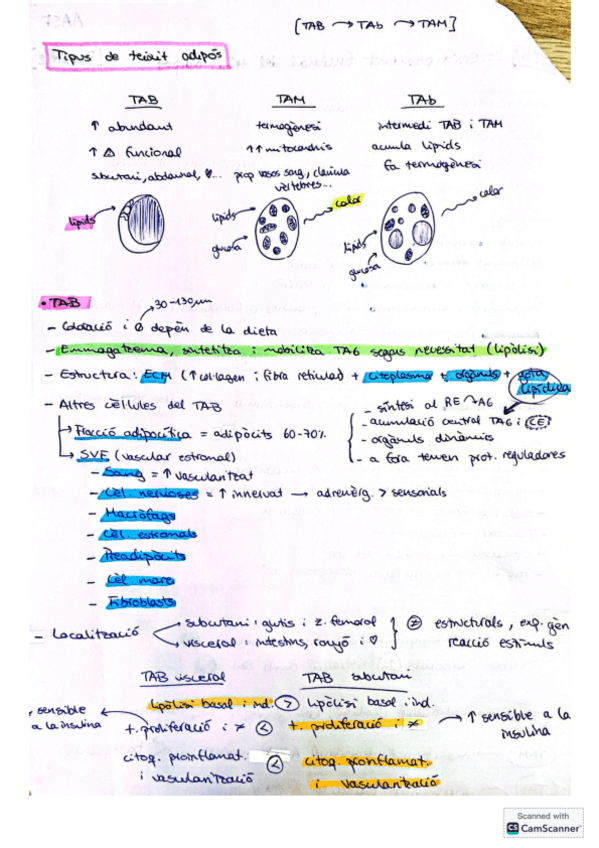 [TAB → TAb → TAM]
Tipus de teixit adipós
TAB TAM TAb
↑ abundant termogènesi intermedi TAB i TAM
↑ △ funcional ↑↑ mitocondris acumula lípids
subcutani, abdominal, ♥... prop vasos sang, clavícula fa termogènesi
vèrtebres...
lípids lípids calor calor
glucosa lípids
glucosa
• TAB
30-130μm
- Coloració i Ø depèn de la dieta
- Emmagatzema, sintetitza i mobilitza TAG segons necessitat (lipòlisi)
- Estructura: ECM (↑ col·lagen i fibra reticulad) + citoplasma + orgànuls + gota lipídica
- Altres cèl·lules del TAB
- síntesi al RE → AG
- acumulació central TAG i CE
- orgànuls dinàmics
- a fora tenen prot. reguladores
→ Fracció adipocítica = adipòcits 60-70%
→ SVF (vascular estromal)
- Sang = ↑ vascularitzat
- Cèl. nervioses = ↑ innervat → adrenèrg. > sensorials
- Macròfags
- Cèl. estromals
- Preadipòcits
- Cèl mare
- Fibroblasts
- Localització
subcutani: glutis i z. femoral
visceral: intestins, ronyó i ♥
≠ estructurals, exp. gèn
reacció estímuls
TAB visceral TAB subcutani
lipòlisi basal i ind. > lipòlisi basal i ind.
- sensible a la insulina
t. proliferació i ≠ < t. proliferació i ≠
→ ↑ sensible a la insulina
citoq. proinflamat. i vascularització < citoq. proinflamat. i vascularització
Scanned with
CS CamScanner